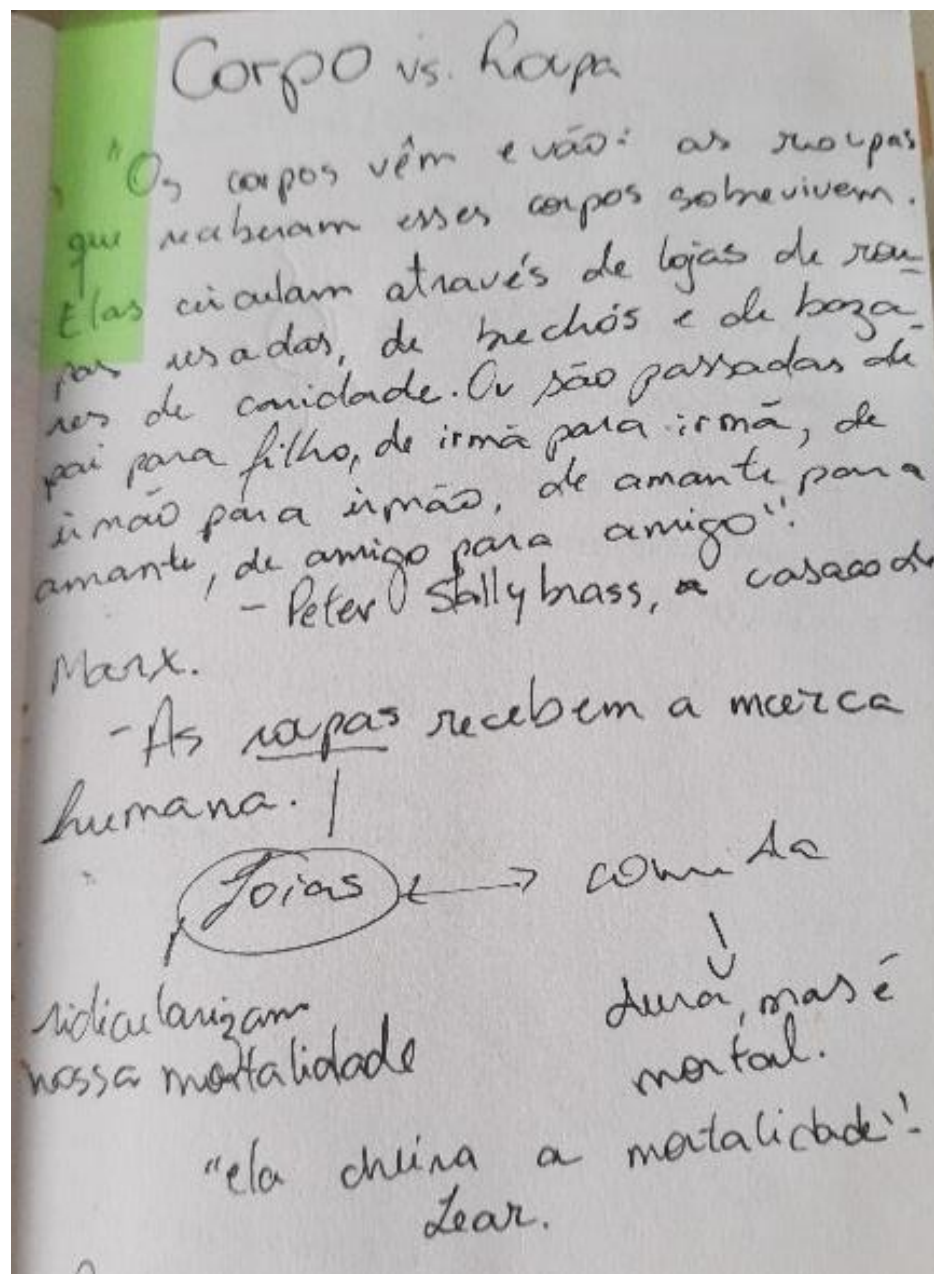 Corpo vs. Roupa
"Os corpos vêm e vão: as roupas
que receberam esses corpos sobrevivem.
Elas circulam através de lojas de rou-
pas usadas, de brechós e de baza-
res de caridade. Ou são passadas de
pai para filho, de irmã para irmã, de
irmão para irmão, de amante para
amante, de amigo para amigo".
- Peter Stallybrass, o casaco de
Marx.
- As roupas recebem a marca
humana.
Joias comida
ridicularizam dura, mas é
nossa mortalidade mortal.
"ela cheira a mortalidade".
Lear.